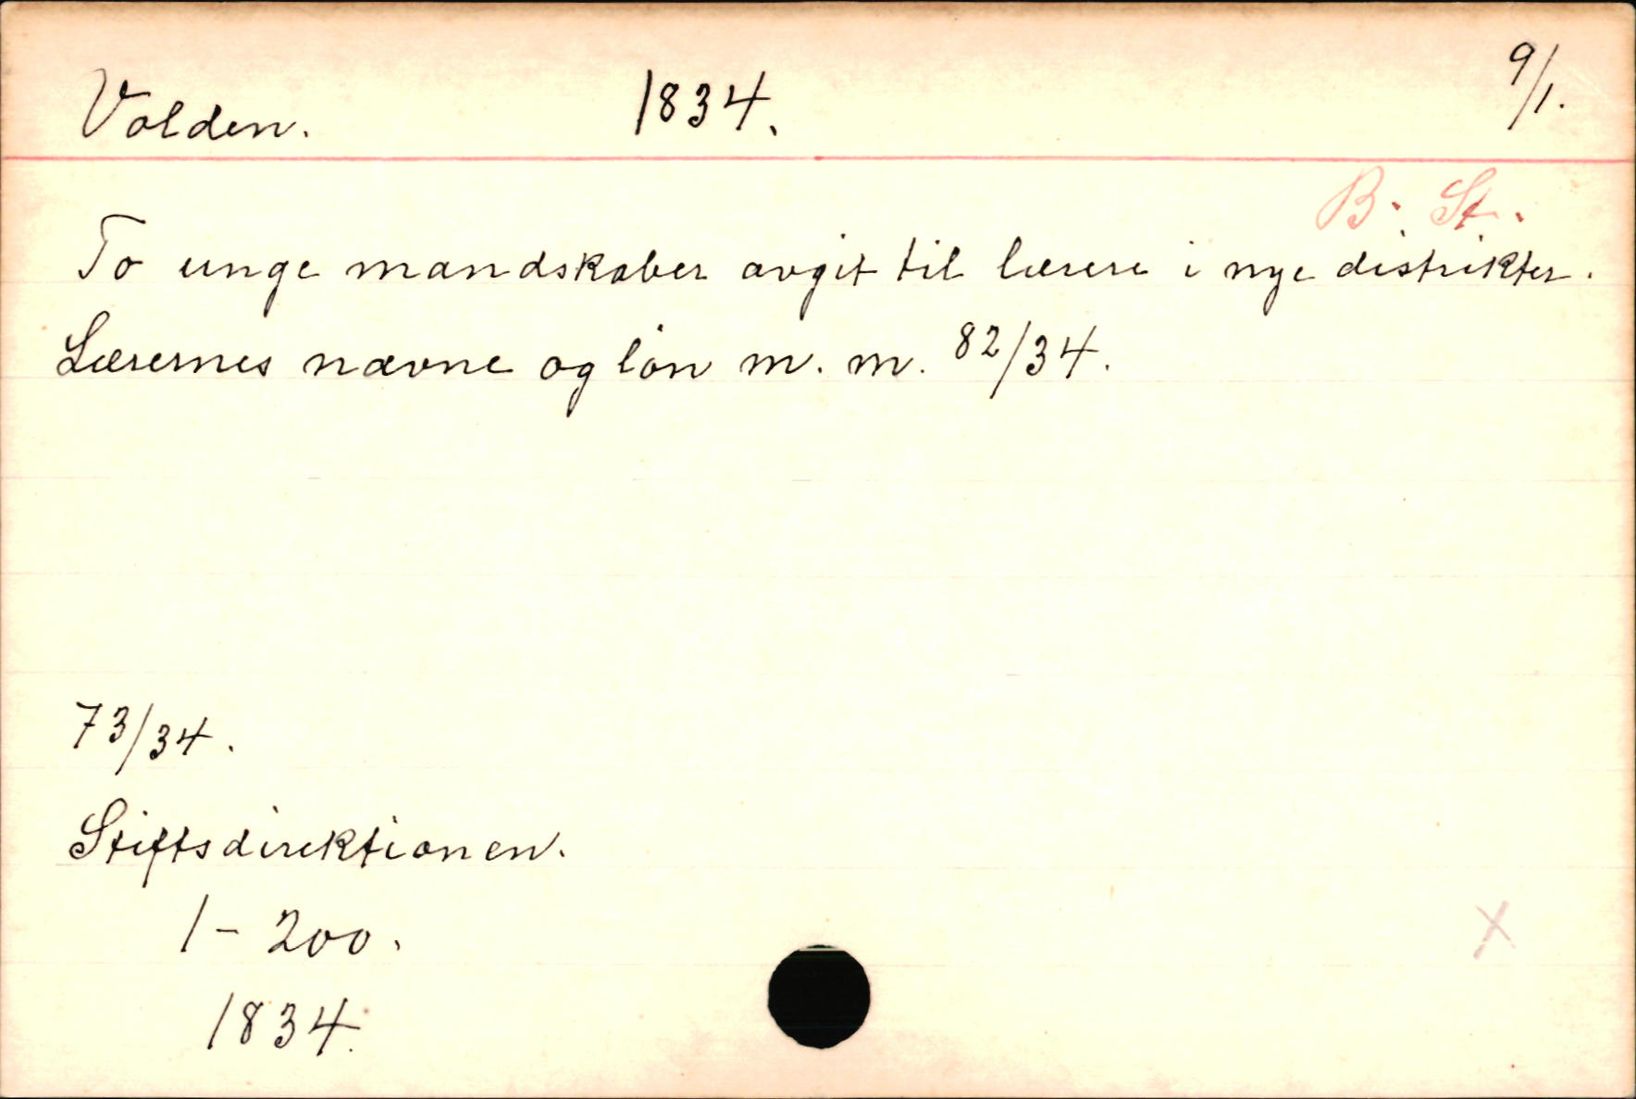 Volden. 1834. 9/1.
B. St.
To unge mandskaber avgit til lærere i nye distrikter.
Lærernes navne og løn m. m. 82/34.
73/34.
Stiftsdirektionen.
1 - 200.
1834.
X